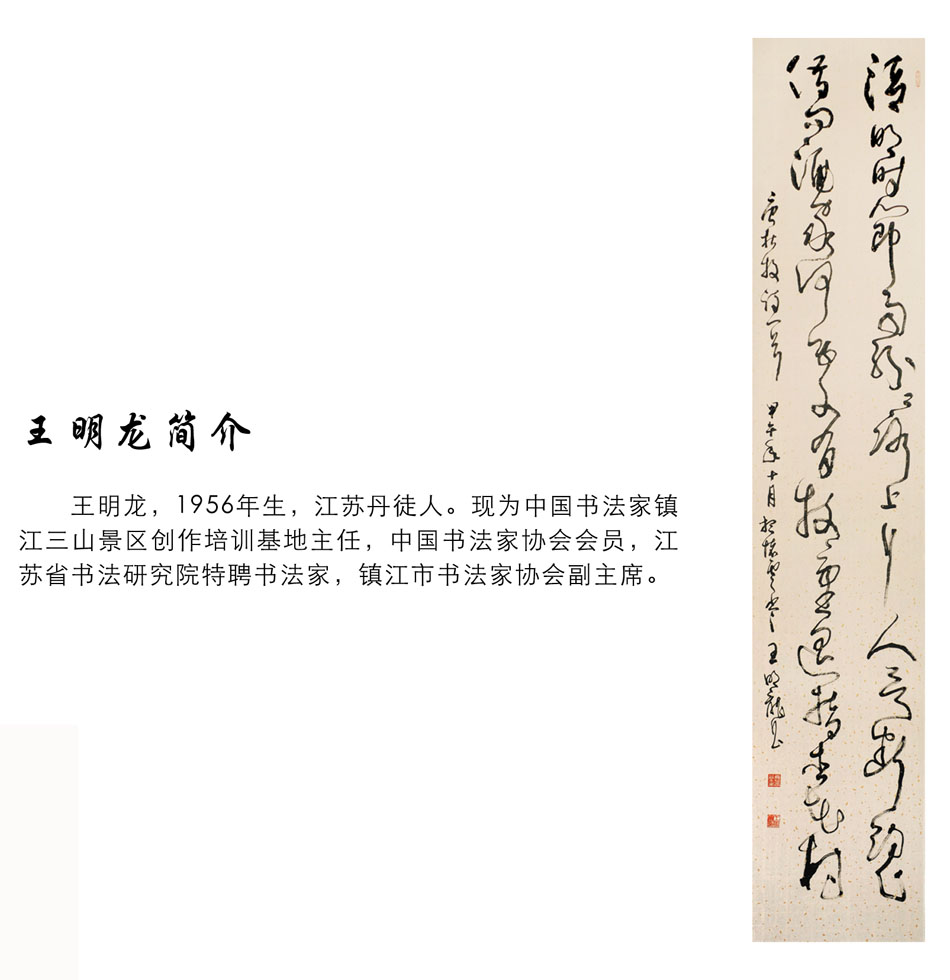 王明龙简介
王明龙，1956年生，江苏丹徒人。现为中国书法家镇
江三山景区创作培训基地主任，中国书法家协会会员，江
苏省书法研究院特聘书法家，镇江市书法家协会副主席。
清明时节雨纷纷路上行人欲断魂
借问酒家何处有牧童遥指杏花村
唐杜牧诗一首 甲午年十月 王明龍书